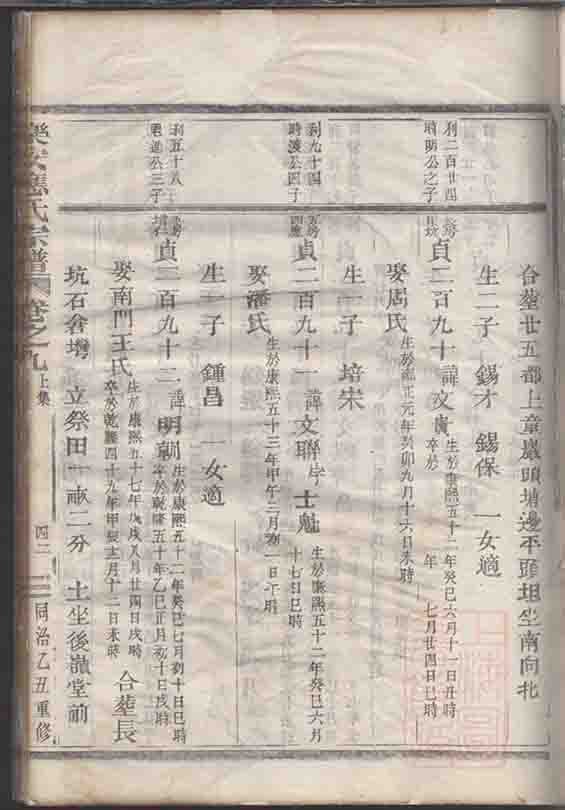 合塟廿五都上童巖頭塘邊平頭坦坐南向北
生二子 錫才 錫保 一女適
利二百廿四
時明公之子
貞二百九十 諱文
生於康熙五十二年癸巳六月十一日丑時
卒於 年 七月廿四日巳時
娶周氏 生於雍正元年癸卯九月十六日未時
生一子 培宋
利九十四
時淩公四子
貞二百九十一 諱文聯 字士魁
生於康熙五十二年癸巳六月
十七日巳時
娶潘氏 生於康熙五十三年甲午三月初一日午時
生一子 鍾昌 一女適
利五十八
公三子
貞二百九十二 諱明
生於康熙五十二年癸巳七月初十日巳時
卒於乾隆五十年乙巳正月初十日戌時
娶南門王氏
生於康熙五十七年戊戌八月廿四日戌時
卒於乾隆四十九年甲辰十二月十二日未時
合塟長
坑石倉塆 立祭田一畝二分 土坐後嶺堂前
樂安 氏宗譜 卷之九 上集 四二 同治乙丑重修